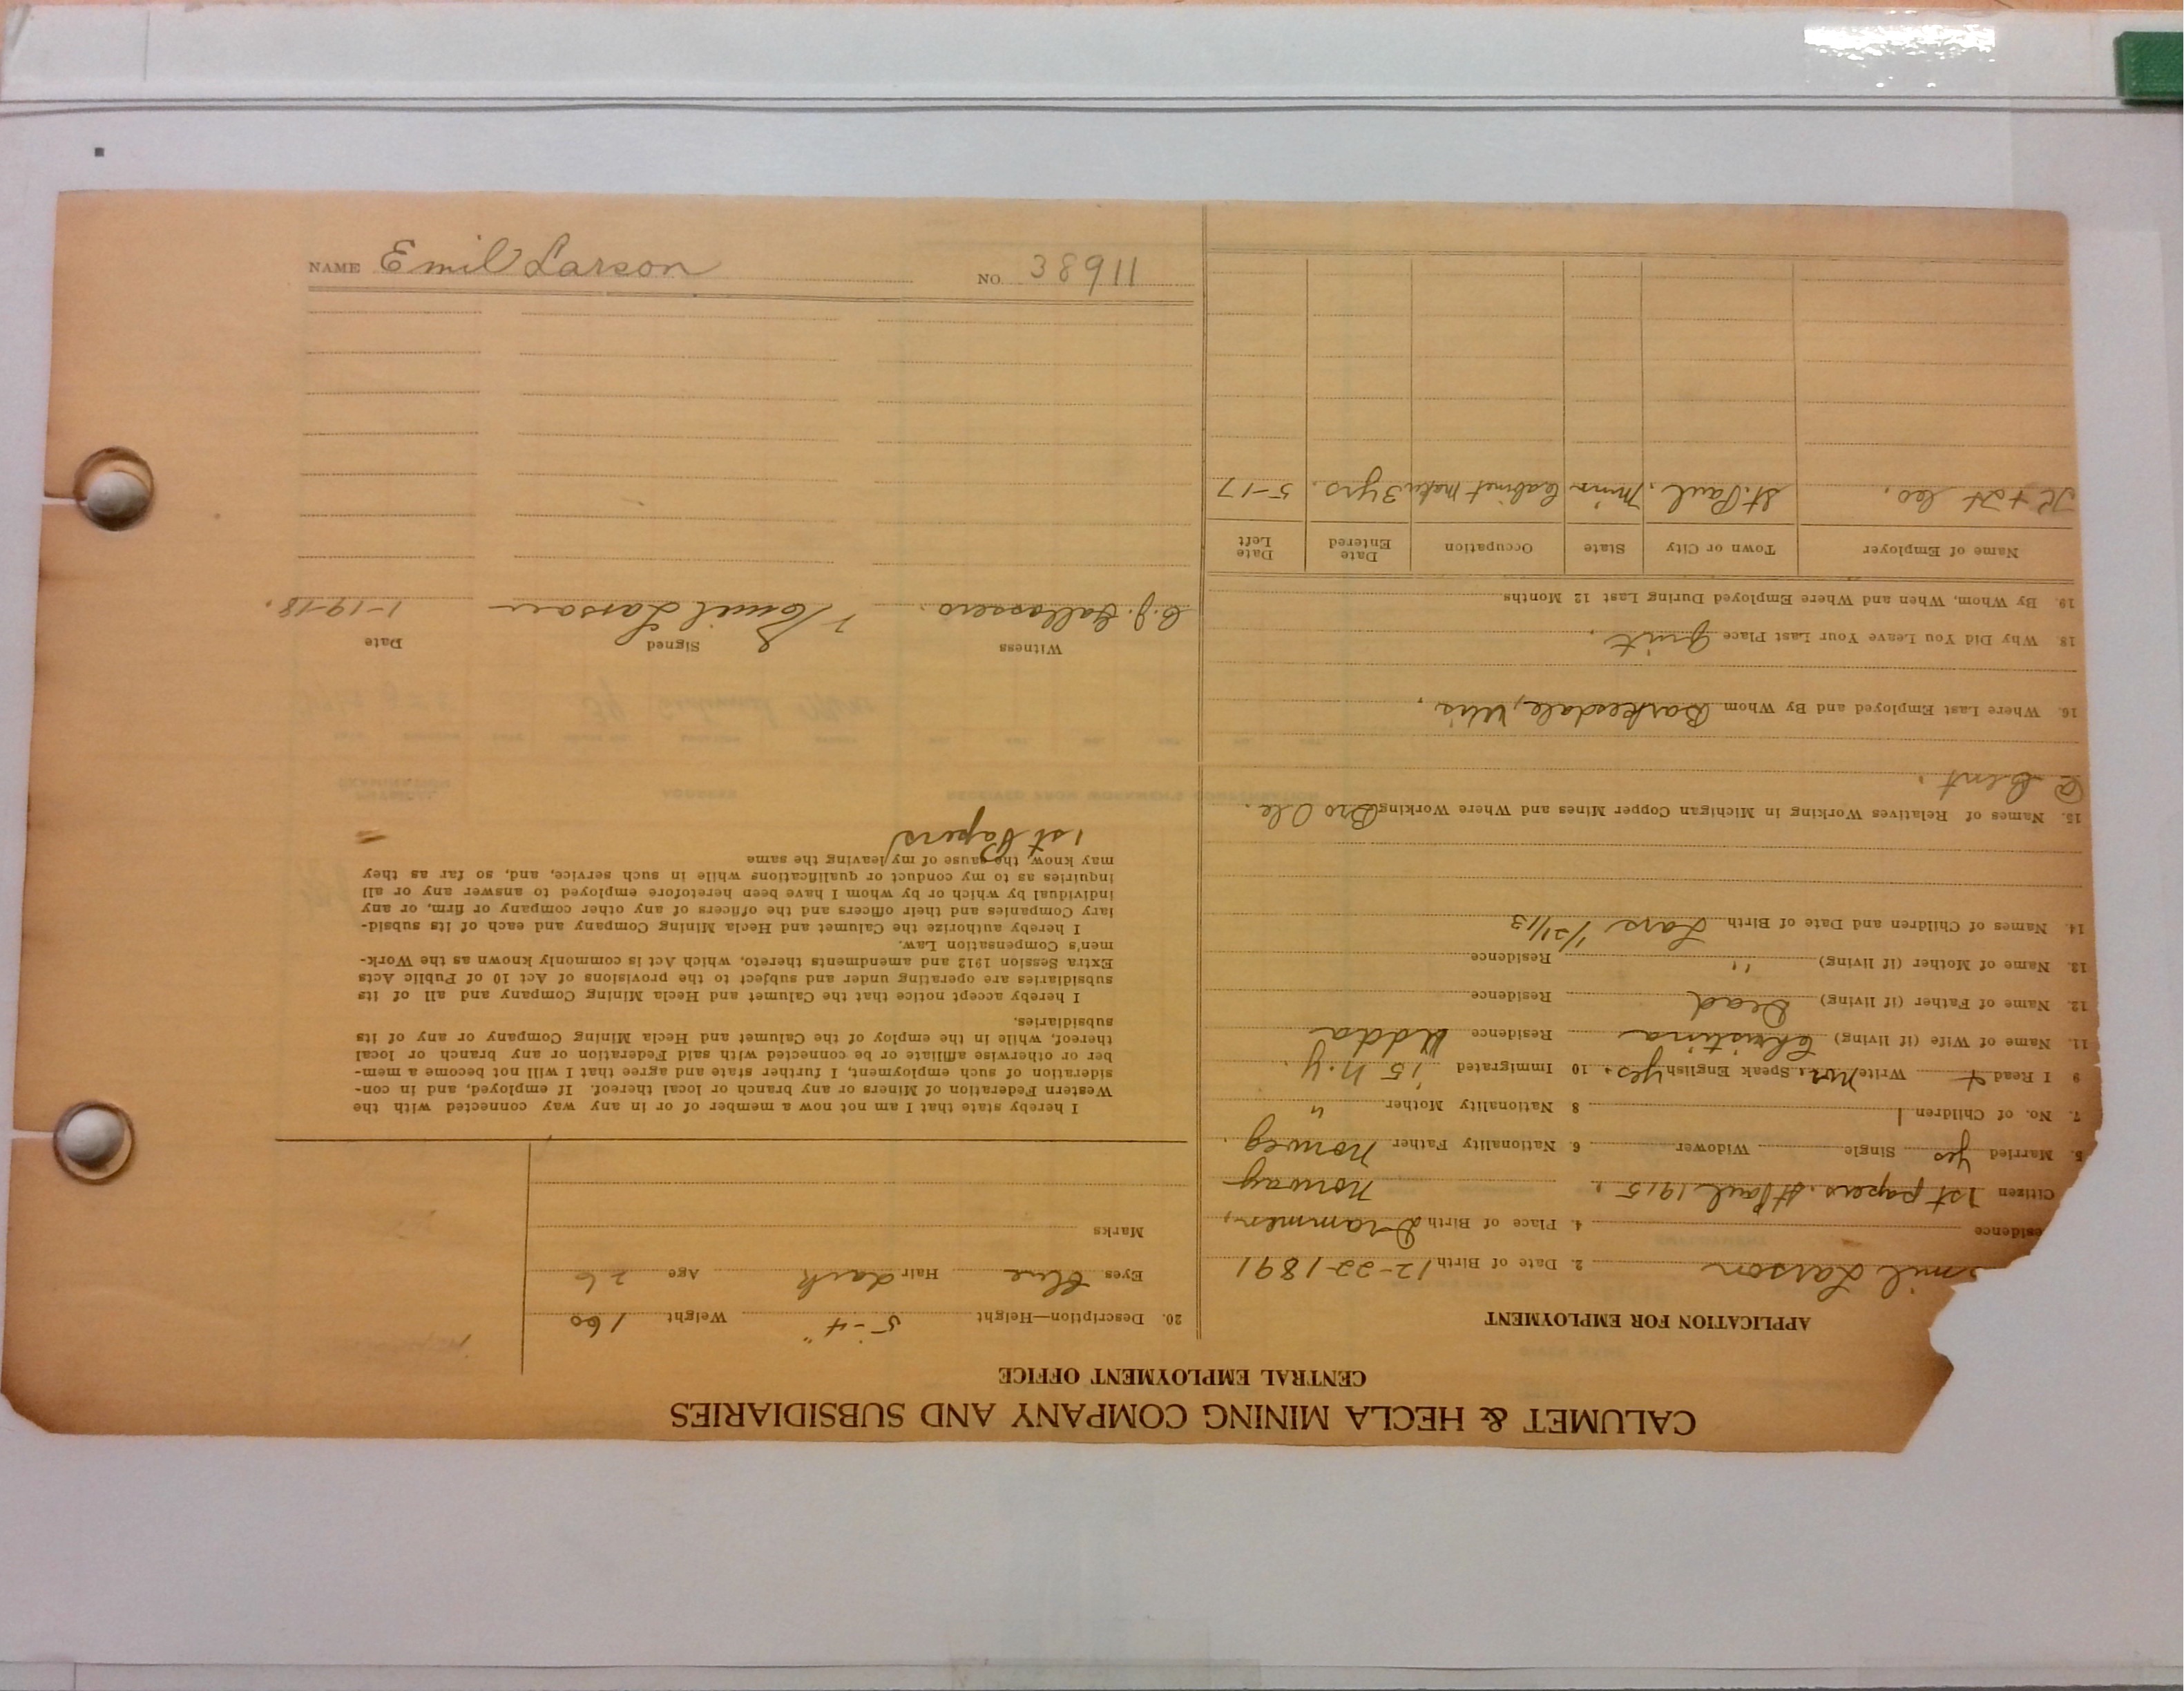 CALUMET & HECLA MINING COMPANY AND SUBSIDIARIES
CENTRAL EMPLOYMENT OFFICE
APPLICATION FOR EMPLOYMENT
mil Larson 2. Date of Birth 12-22-1891
esidence 4. Place of Birth Drammen,
Citizen 1st papers. St Paul 1915. Norway
5. Married yes Single Widower 6. Nationality Father Norweg.
7. No. of Children 1 8 Nationality Mother "
9 I Read + Write Nor. Speak English yes. 10 Immigrated '15 N.Y.
11. Name of Wife (if living) Christina Residence
12. Name of Father (if living) Dead Residence
13. Name of Mother (if living) " Residence
14. Names of Children and Date of Birth Lars 1/21/13
15. Names of Relatives Working in Michigan Copper Mines and Where Working Bro Ole.
@ Cent.
16. Where Last Employed and By Whom Barkesdale, Wis.
18. Why Did You Leave Your Last Place quit.
19. By Whom, When and Where Employed During Last 12 Months
Name of Employer Town or City State Occupation Date Entered Date Left
Co. St. Paul, Minn Cabinet Maker 3 yrs. 5-17
20. Description—Height 5'-4" Weight 160
Eyes Blue Hair dark Age 26
Marks
I hereby state that I am not now a member of or in any way connected with the
Western Federation of Miners or any branch or local thereof. If employed, and in con-
sideration of such employment, I further state and agree that I will not become a mem-
ber or otherwise affiliate or be connected with said Federation or any branch or local
thereof, while in the employ of the Calumet and Hecla Mining Company or any of its
subsidiaries.
I hereby accept notice that the Calumet and Hecla Mining Company and all of its
subsidiaries are operating under and subject to the provisions of Act 10 of Public Acts
Extra Session 1912 and amendments thereto, which Act is commonly known as the Work-
men's Compensation Law.
I hereby authorize the Calumet and Hecla Mining Company and each of its subsid-
iary Companies and their officers and the officers of any other company or firm, or any
individual by which or by whom I have been heretofore employed to answer any or all
inquiries as to my conduct or qualifications while in such service, and, so far as they
may know, the cause of my leaving the same
1st Papers
Witness Signed Date
Emil Larson 1-19-18.
NAME Emil Larson NO. 38911